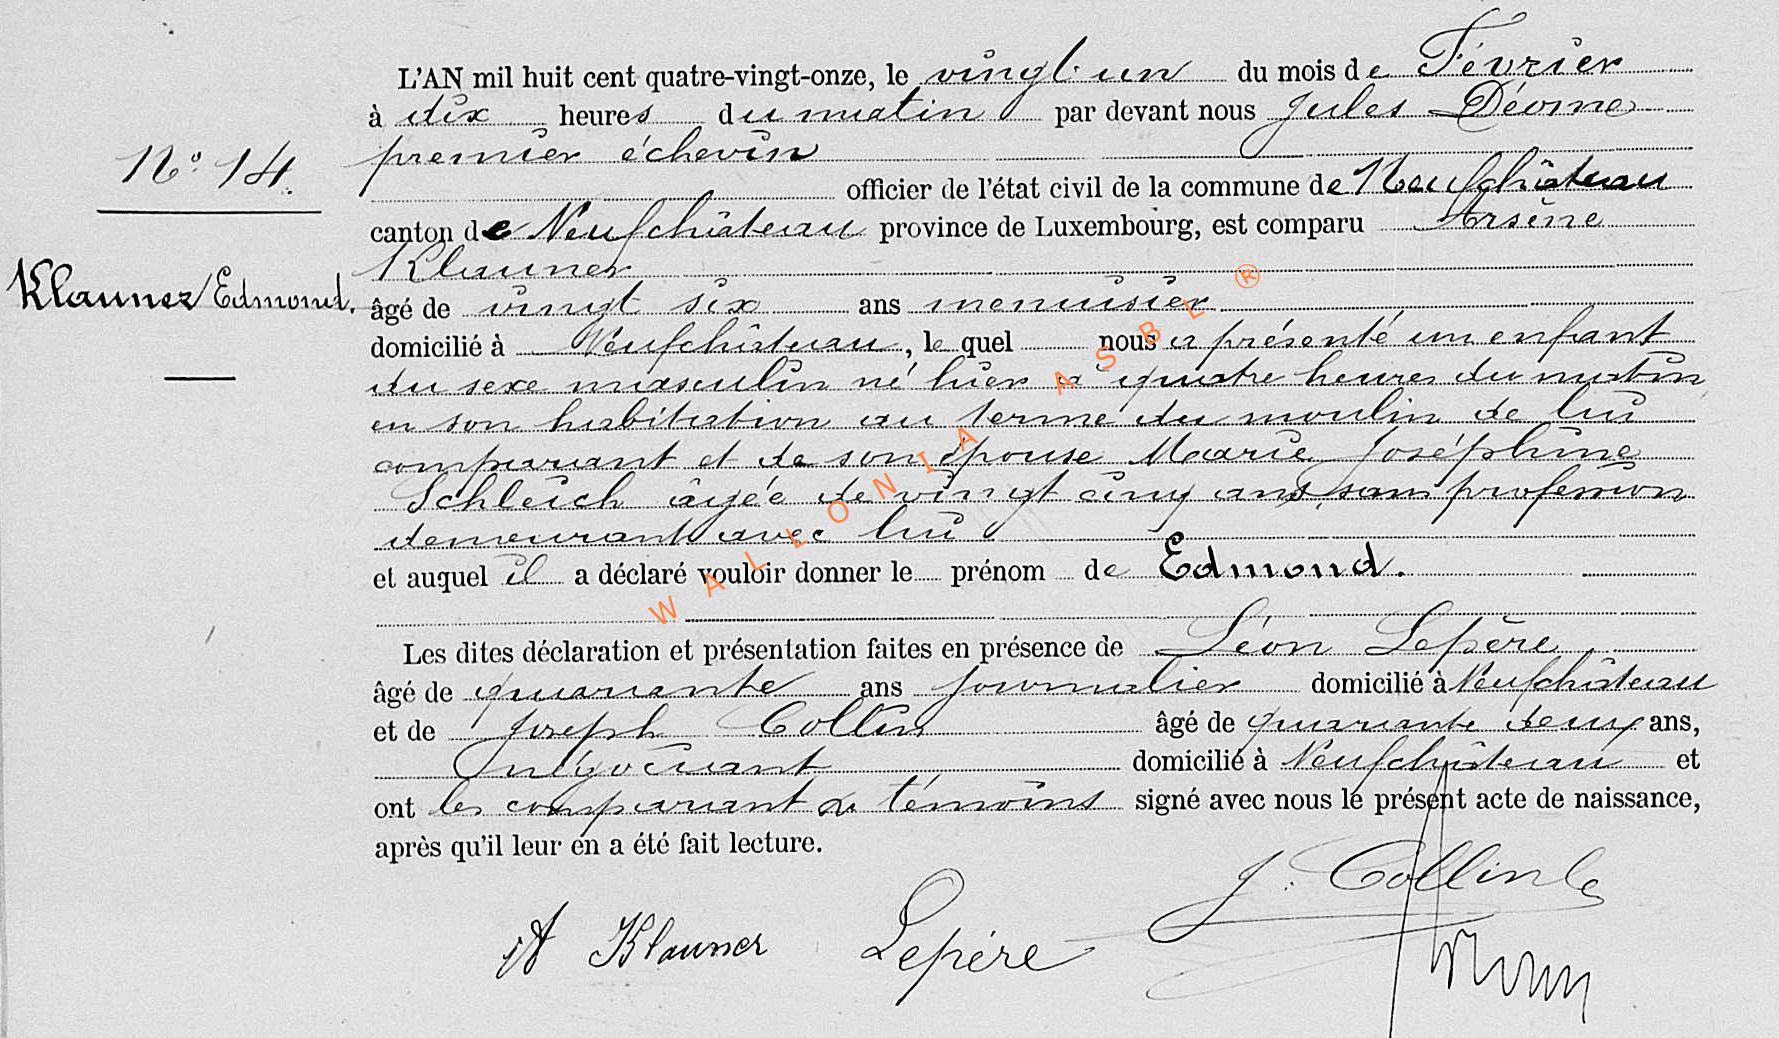 L'AN mil huit cent quatre-vingt-onze, le vingt un du mois de Février
à dix heures du matin par devant nous Jules
premier échevin
N° 14.
officier de l'état civil de la commune de Neufchâteau
canton de Neufchâteau province de Luxembourg, est comparu Arsène
Klauner
Klauner Edmond.
âgé de vingt six ans menuisier
domicilié à Neufchâteau, le quel nous a présenté un enfant
du sexe masculin né hier à quatre heures du matin
en son habitation au terme du moulin de lui
comparant et de son épouse Marie Joséphine
Schleich âgée de vingt cinq ans, sans profession
demeurant avec lui
et auquel il a déclaré vouloir donner le prénom de Edmond.
WALLONIA ASBL ®
Les dites déclaration et présentation faites en présence de Léon Lepère,
âgé de quarante ans journalier domicilié à Neufchâteau
et de Joseph Collin âgé de quarante deux ans,
négociant domicilié à Neufchâteau et
ont les comparant & témoins signé avec nous le présent acte de naissance,
après qu'il leur en a été fait lecture.
J. Collin
A Klauner Lepère